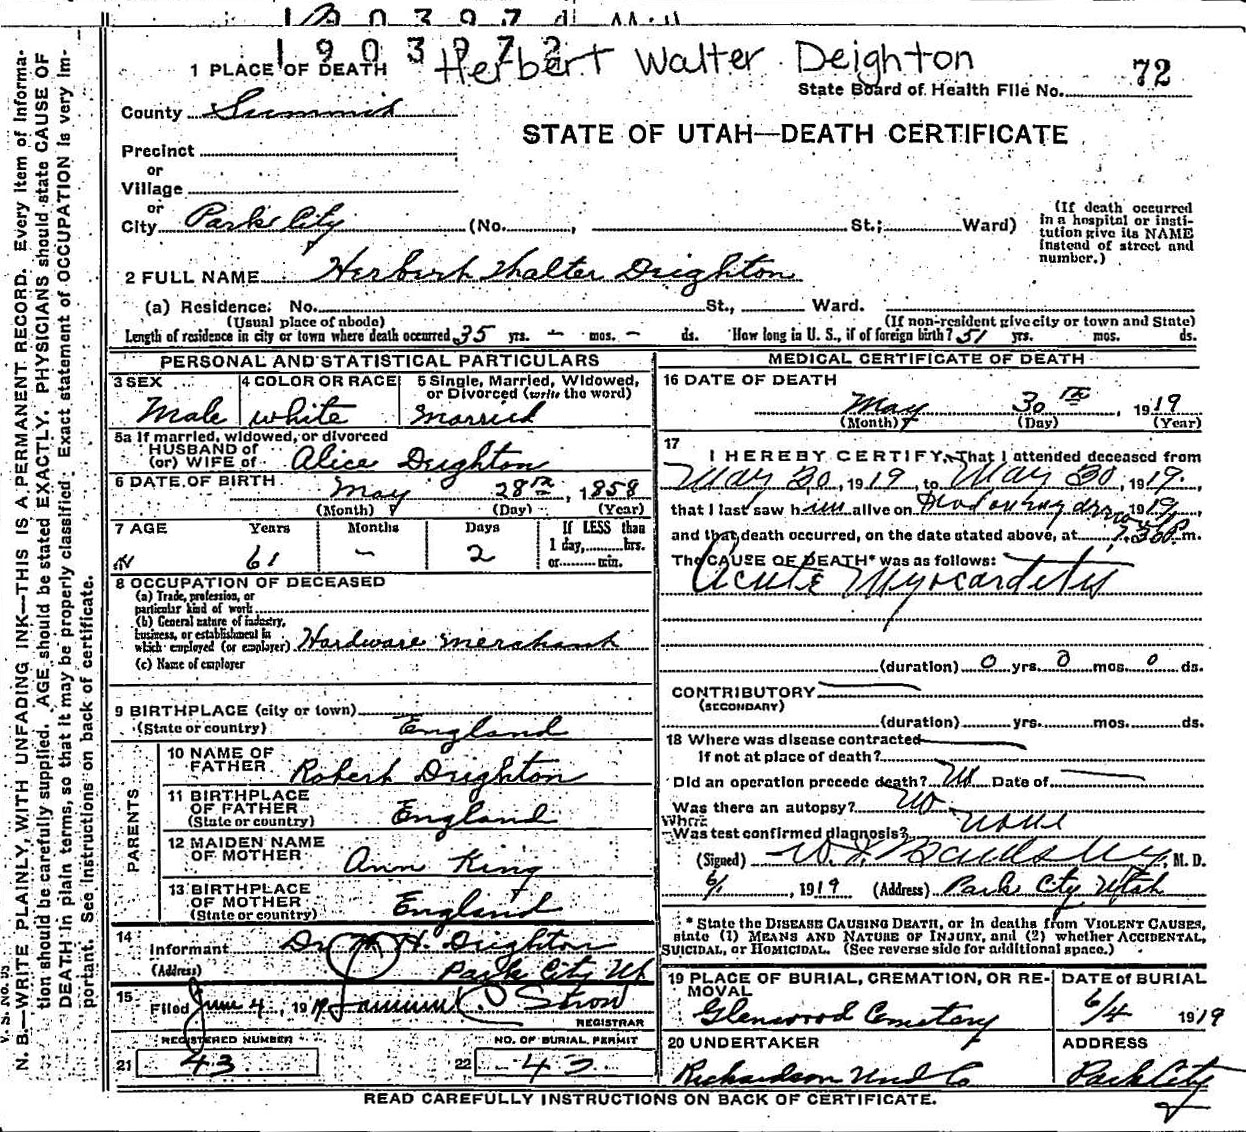 190397
1903972
Herbert Walter Deighton
1 PLACE OF DEATH
State Board of Health File No. 72
County Summit
STATE OF UTAH—DEATH CERTIFICATE
Precinct
or
Village
or
City Park City (No. , St.; Ward)
(If death occurred in a hospital or insti-
tution give its NAME
instead of street and
number.)
2 FULL NAME Herbert Walter Deighton
(a) Residence: No. St., Ward.
(Usual place of abode) (If non-resident give city or town and State)
Length of residence in city or town where death occurred 35 yrs. – mos. – ds. How long in U. S., if of foreign birth? 51 yrs. mos. ds.
PERSONAL AND STATISTICAL PARTICULARS
3 SEX
Male
4 COLOR OR RACE
white
5 Single, Married, Widowed,
or Divorced (write the word)
Married
5a If married, widowed, or divorced
HUSBAND of
(or) WIFE of Alice Deighton
6 DATE OF BIRTH
May 28th, 1858
(Month) (Day) (Year)
7 AGE Years Months Days If LESS than
1 day, hrs.
or min.
61 – 2
8 OCCUPATION OF DECEASED
(a) Trade, profession, or
particular kind of work
(b) General nature of industry,
business, or establishment in
which employed (or employer) Hardware merchant
(c) Name of employer
9 BIRTHPLACE (city or town)
(State or country) England
PARENTS
10 NAME OF
FATHER Robert Deighton
11 BIRTHPLACE
OF FATHER
(State or country) England
12 MAIDEN NAME
OF MOTHER Ann King
13 BIRTHPLACE
OF MOTHER
(State or country) England
14
Informant Dr H. Deighton
(Address) Park City Ut
15
Filed June 4, 1919
REGISTRAR
REGISTERED NUMBER
21 43
NO. OF BURIAL PERMIT
22 43
MEDICAL CERTIFICATE OF DEATH
16 DATE OF DEATH
May 30th, 1919
(Month) (Day) (Year)
17
I HEREBY CERTIFY, That I attended deceased from
May 30, 1919, to May 30, 1919.
that I last saw him alive on 1919,
and that death occurred, on the date stated above, at m.
The CAUSE OF DEATH* was as follows:
Acute Myocarditis
(duration) 0 yrs. 0 mos. 0 ds.
CONTRIBUTORY
(SECONDARY)
(duration) yrs. mos. ds.
18 Where was disease contracted
If not at place of death?
Did an operation precede death? No Date of
Was there an autopsy? No
What
Was test confirmed diagnosis? none
(Signed) , M. D.
6/1, 1919 (Address) Park City Utah
* State the DISEASE CAUSING DEATH, or in deaths from VIOLENT CAUSES,
state (1) MEANS AND NATURE OF INJURY, and (2) whether ACCIDENTAL,
SUICIDAL, or HOMICIDAL. (See reverse side for additional space.)
19 PLACE OF BURIAL, CREMATION, OR RE-
MOVAL
Glenwood Cemetery
DATE OF BURIAL
6/4 1919
20 UNDERTAKER
Richardson Und Co
ADDRESS
Park City
READ CAREFULLY INSTRUCTIONS ON BACK OF CERTIFICATE.
N. B.—WRITE PLAINLY, WITH UNFADING INK—THIS IS A PERMANENT RECORD. Every item of informa-
tion should be carefully supplied. AGE should be stated EXACTLY. PHYSICIANS should state CAUSE OF
DEATH in plain terms, so that it may be properly classified. Exact statement of OCCUPATION is very im-
portant. See instructions on back of certificate.